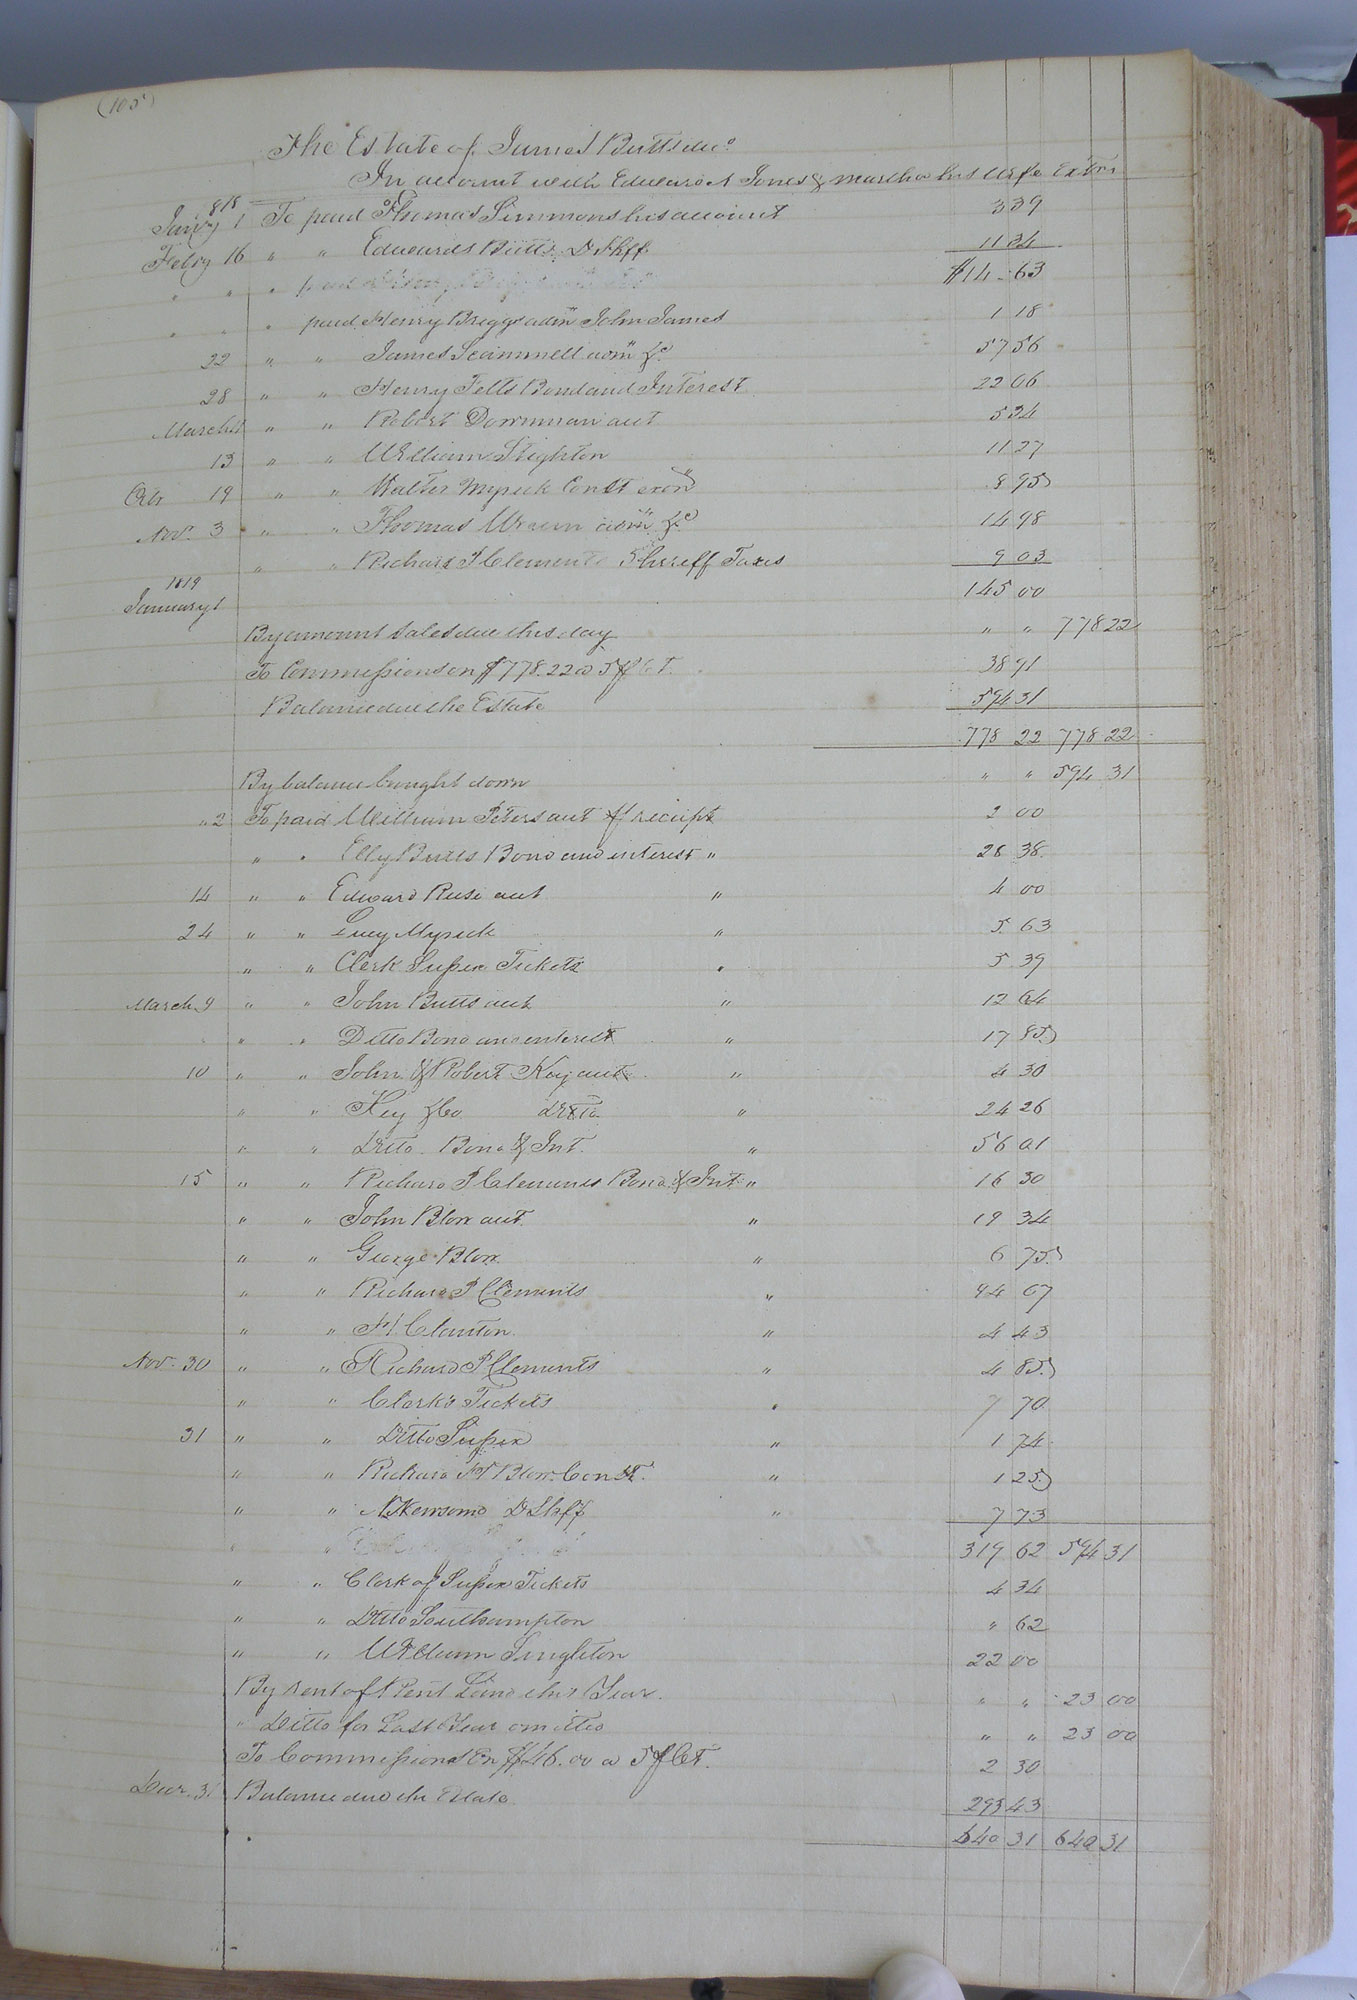 (105)
The Estate of James Butts decd
In account with Edward A Jones & Martha his Wife Extrs
1818
Jan'y 1 To paid Thomas Simmons his account 3 39
Feb'y 16 " " Edwards Butts D Shff 11 24
" " " paid $14 63
" " " paid Henry Briggs admr John James 1 18
22 " " James Scammell admr &c 57 56
28 " " Henry Felts Bond and Interest 22 06
March 4 " " Robert Dornman act 5 34
13 " " William Stighton 11 27
Octr 19 " " Walter Myrick Const exon 8 95
Nov. 3 " " Thomas Wrenn admr &c 14 98
" " Richard P Clements Sheriff Taxes 9 03
1819
January 1 145 00
By amount sales due this day " " 778 22
To Commissions on $778.22 a 5 p Ct. 38 91
Balance due the Estate 594 31
778 22 778 22
By balance bought down " " 594 31
" 2 To paid William Peters act p receipt 2 00
" " Elly Butts Bond and interest " 28 38
14 " " Edward Ruse act " 4 00
24 " " Lucy Myrick " 5 63
" " Clerk Sussex Tickets " 5 39
March 9 " " John Butts act " 12 64
" " Ditto Bond and interest " 17 85
10 " " John & Robert Key act " 4 30
" " Key & Co Ditto " 24 26
" " Ditto Bond & Int. " 56 01
15 " " Richard P Clements Bond & Int " 16 30
" " John Blow act " 19 34
" " George Blow " 6 75
" " Richard P Clements " 44 07
" " H Clanton " 4 43
Nov. 30 " " Richard P Clements " 4 85
" " Clerk's Tickets " 7 70
31 " " Ditto Sussex " 1 74
" " Richard H Blow Const. " 1 25
" " N Newsome D Shff " 7 73
" " 319 62 594 31
" " Clerk of Sussex Tickets 4 34
" " Ditto Southampton " 62
" " William Singleton 22 00
By rent of Rent Land this Year. " " 23 00
" Ditto for Last Year omitted " " 23 00
To Commissions On $46.00 a 5 p Ct. 2 30
Decr. 31 Balance due the Estate 293 43
640 31 640 31